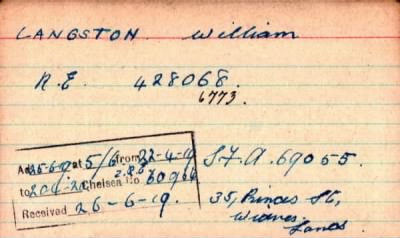 LANGSTON. William
R.E. 428068.
6773.
at 5/6 from 22-4-19
to Chelsea No
Received 26-6-19.
S.F.A. 69055.
35, Princes St,
Widnes.
Lancs.